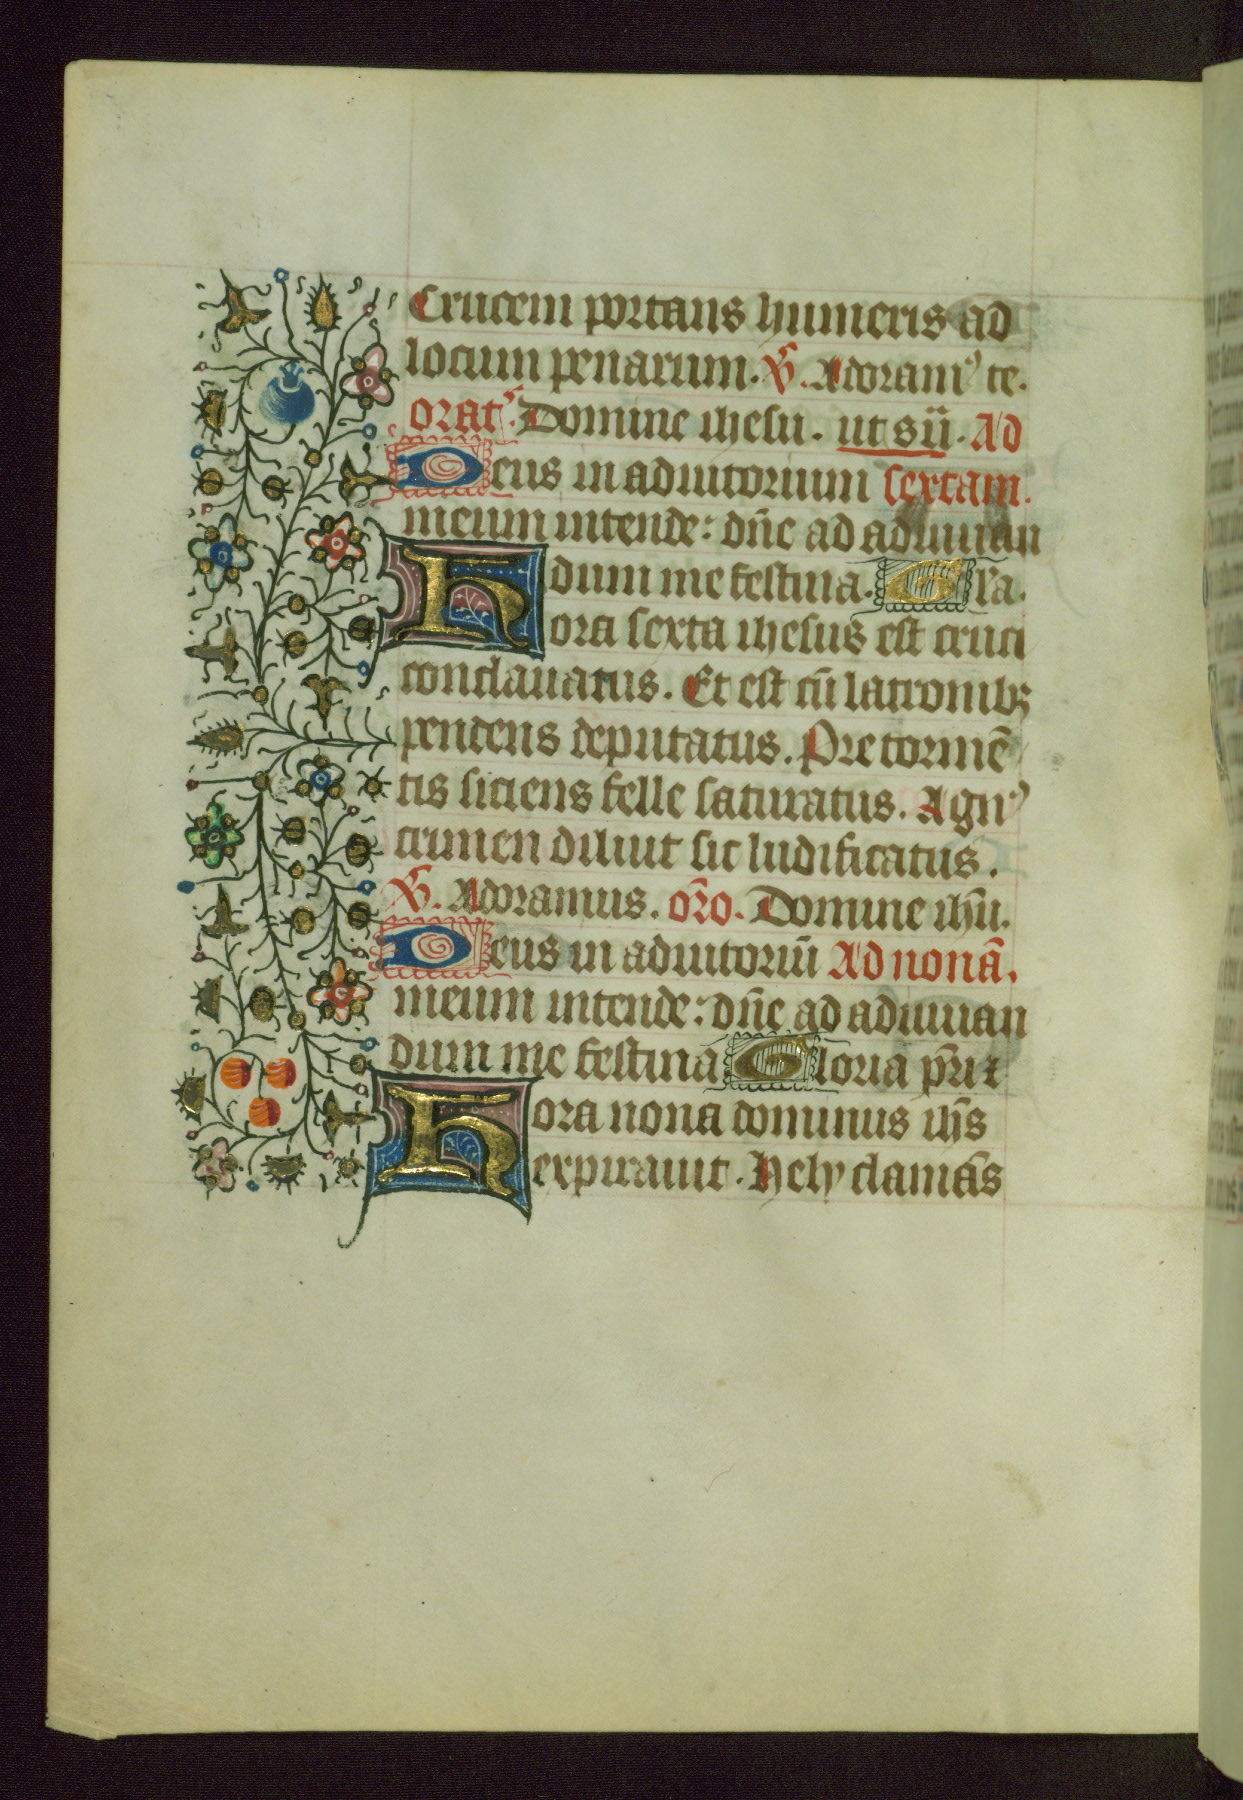 Crucem portans humeris ad
locum penarum. V̄. Adoram⁹ te.
orat⁹. Domine ihesu. ut sū. Ad
Deus in adiutorium sextam.
meum intende: dn̄e ad adiuuan
dum me festina. G la.
Hora sexta ihesus est cruci
conclauatus. Et est cū latronibꝫ
pendens deputatus. Pre tormē
tis sitiens felle saturatus. Agn⁹
crimen diluit sic ludificatus.
V̄. Adoramus. or̄o. Domine ihū.
Deus in adiutoriū Ad nonā.
meum intende: dn̄e ad adiuuan
dum me festina Gloria pr̄i ⁊
Hora nona dominus ihs̄
expirauit. Hely clamās